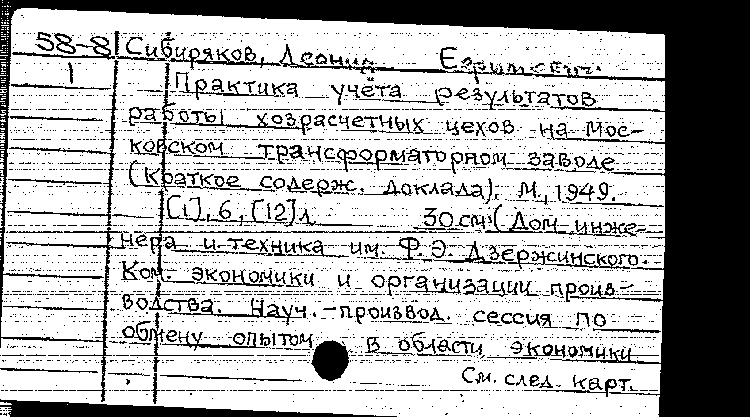 58-8 Сибиряков, Леонид
1 Практика учёта результатов
работы хозрасчетных цехов на Мос-
ковском трансформаторном заводе
(Краткое содерж. доклада). М., 1949.
[1], 6, [12] л 30 см. (Дом инже-
нера и техника им. Ф.Э. Дзержинского.
Ком. экономики и организации произ-
водства. Науч.-производ. сессия по
обмену опытом в области экономики
См. след. карт.